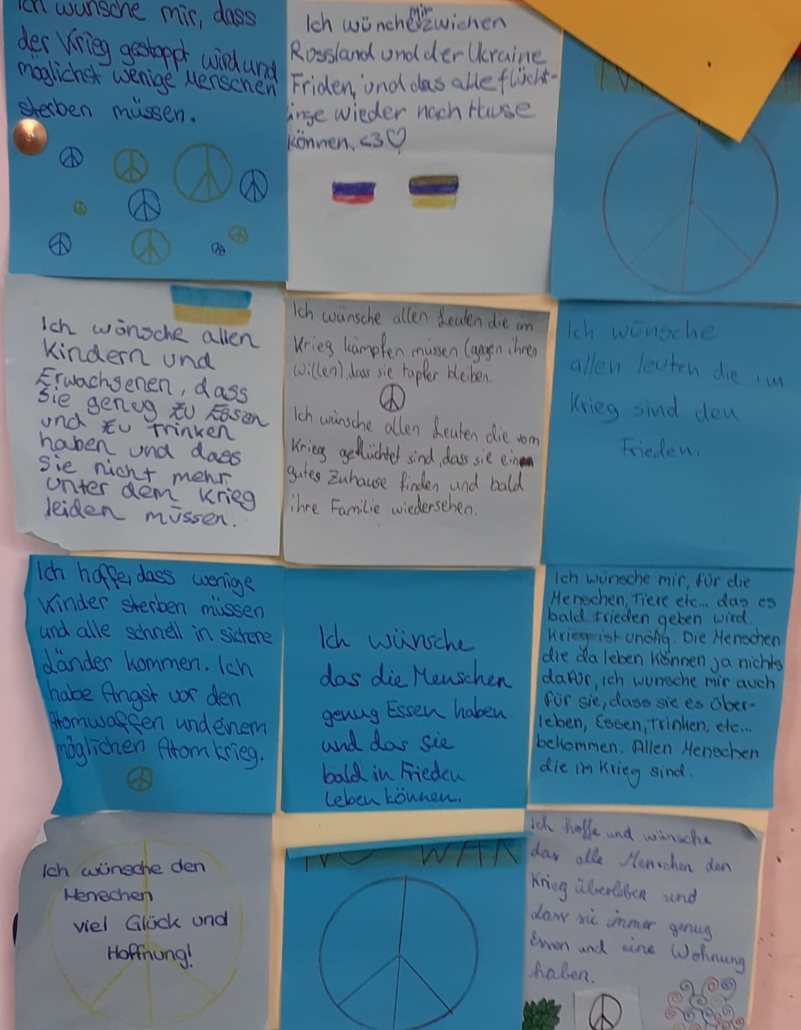 Ich wünsche mir, dass
der Krieg gestoppt wird und
möglichst wenige Menschen
sterben müssen.
Ich wünche mir zwichen
Rossland und der Ukraine
Friden, und das alle flücht-
inge wieder nach Hause
können. <3♡
Ich wönsche allen
Kindern und
Erwachsenen, dass
Sie genug zu Essen
und zu Trinken
haben und dass
Sie nicht mehr
unter dem Krieg
leiden müssen.
Ich wünsche allen Leuten die im
Krieg kämpfen müssen (gegen ihren
Willen), dass sie tapfer bleiben.
Ich wünsche allen Leuten die vom
Krieg geflüchtet sind, dass sie ein
gutes Zuhause finden und bald
ihre Familie wiedersehen.
Ich wünsche
allen leuten die im
Krieg sind den
Frieden.
Ich hoffe, dass wenige
Kinder sterben müssen
und alle schnell in sichere
Länder kommen. Ich
habe Angst vor den
Atomwaffen und einem
möglichen Atomkrieg.
Ich wünsche
das die Menschen
genug Essen haben
und das sie
bald in Frieden
Leben können.
Ich wünsche mir, für die
Menschen, Tiere etc... das es
bald frieden geben wird.
Krieg ist unötig. Die Menschen
die da leben können ja nichts
dafür, ich wünsche mir auch
für sie, dass sie es über-
leben, Essen, Trinken, etc...
bekommen. Allen Menschen
die im Krieg sind.
Ich wünsche den
Menschen
viel Glück und
Hoffnung!
NO WAR
Ich hoffe und wünsche
das alle Menschen den
Krieg überleben und
dass sie immer genug
Essen und eine Wohnung
haben.